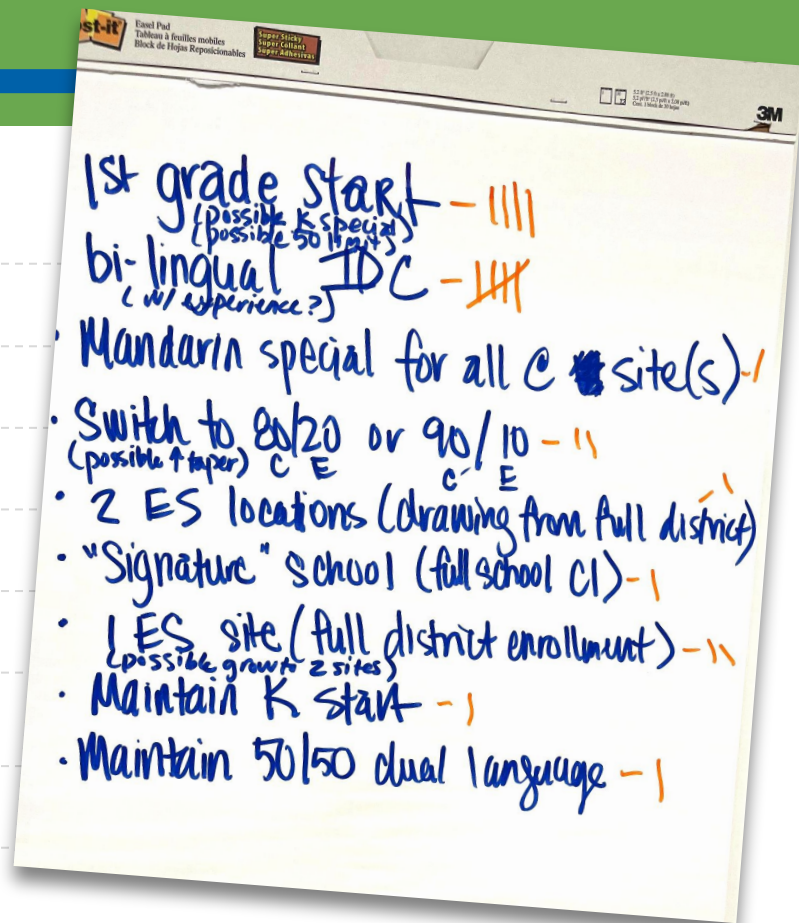 st-it
Easel Pad
Tableau à feuilles mobiles
Block de Hojas Reposicionables
Super Sticky
Super Collant
Super Adhesivas
3M
1st grade start - ||||
(possible K special)
(possible 50 limit)
bi-lingual IDC - 卌
(w/ experience?)
• Mandarin special for all @ site(s) - |
• Switch to 80/20 or 90/10 - ||
(possible ↑ taper) C E C E
• 2 ES locations (drawing from full district) - |
• "Signature" School (full school CI) - |
• 1 ES site (full district enrollment) - ||
(possible growth 2 sites)
• Maintain K start - |
• Maintain 50/50 dual language - |